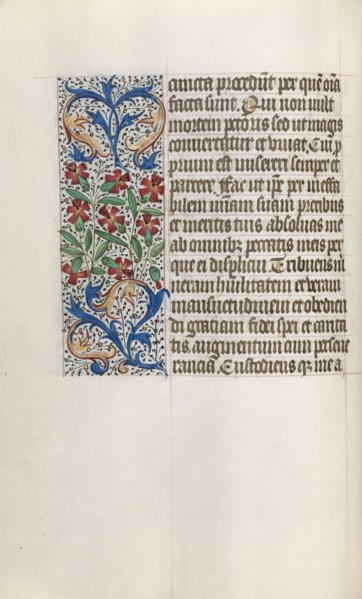 cuncta procedūt per quē oīa
facta sunt. Qui non vult
mortem pctoris sed ut magis
convertatur et vivat. Cui p
prium est misereri semper et
parcere. Fac ut ip̄e per ineffa
bilem mīam suam precibus
et meritis tuis absoluas me
ab omnibꝫ peccatis meis per
que ei displicui Tribuens m
veram huīlitatem et veram
mansuetudinem et obedien
di gratiam fidei spei et carita
tis. augmentum cum perseve
rancia. Custodiens qꝫ me a